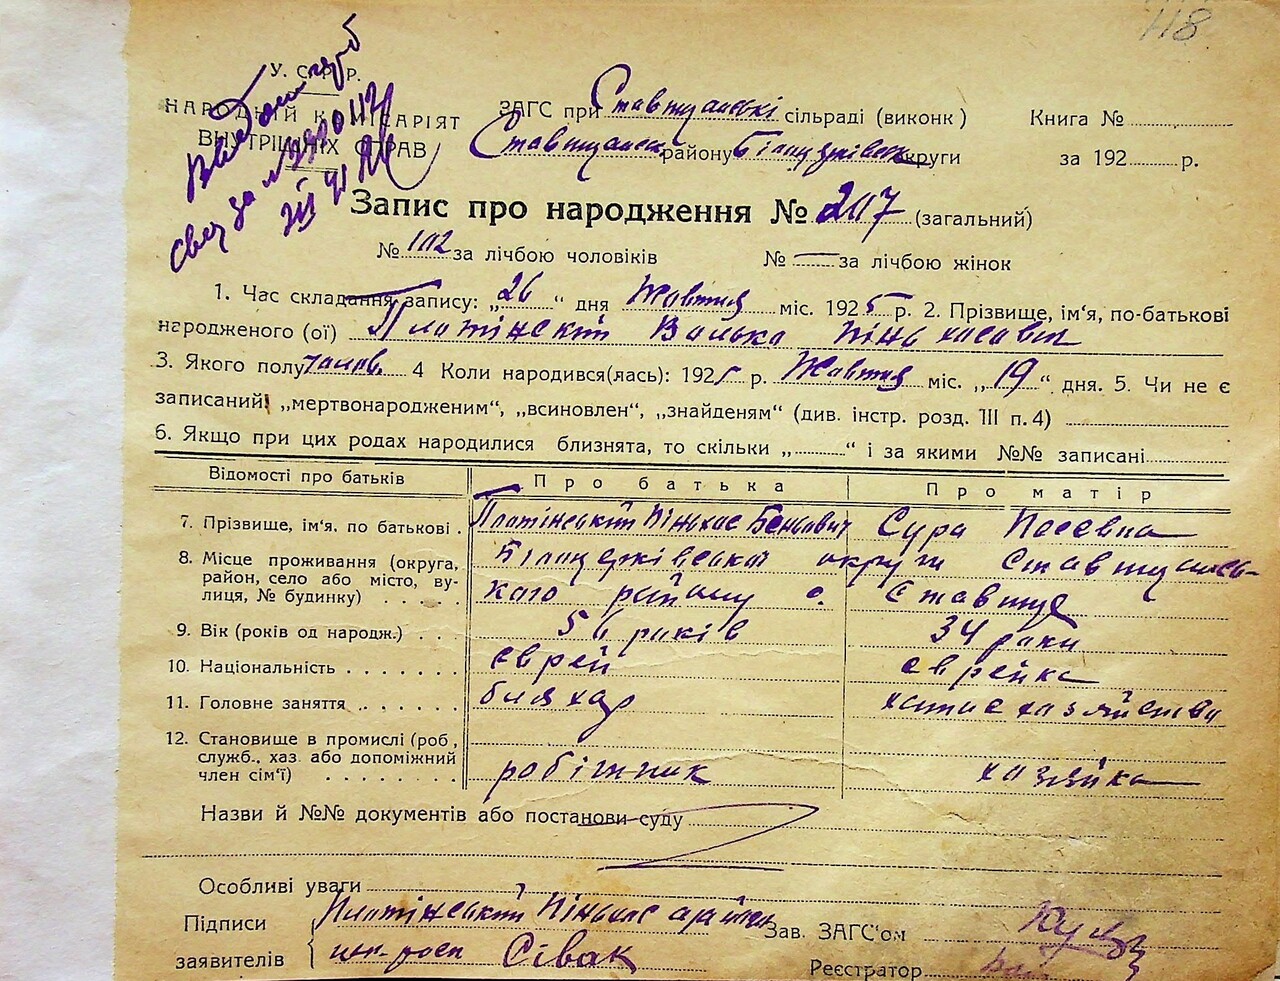 118
У. С. Р. Р.
НАРОДНІЙ КОМІСАРІЯТ
ВНУТРІШНІХ СПРАВ
ЗАГС при Ставищанські сільраді (виконк)
Книга №
Ставищанськ району Білоцерківськ округи
за 192 р.
Запис про народження № 207 (загальний)
№ 102 за лічбою чоловіків № — за лічбою жінок
1. Час складання запису: „26“ дня Жовтня міс. 1925 р. 2. Прізвище, ім‘я, по-батькові
народженого (ої) Платінскій Волько Піньхасович
3. Якого полу чолов. 4 Коли народився(лась): 1925 р. Жовтня міс. „19“ дня. 5. Чи не є
записаний: „мертвонародженим“, „всиновлен“, „знайденям“ (див. інстр. розд. III п. 4)
6. Якщо при цих родах народилися близнята, то скільки „ “ і за якими №№ записані
Відомості про батьків Про батька Про матір
7. Прізвище, ім‘я, по батькові . Платінський Піньхас Беньович Сура Йосевна
8. Місце проживання (округа, Білоцерківської округи Ставищансь-
район, село або місто, ву-
лиця, № будинку) . . . . . кого району с. Ставище
9. Вік (років од народж.) . . 56 років 34 роки
10. Національність . . . . . . . єврей єврейка
11. Головне заняття . . . . . . бляхар хатнє хазяйство
12. Становище в промислі (роб,
служб., хаз або допоміжний
член сім‘ї) . . . . . . . . робітник хазяйка
Назви й №№ документів або постанови суду
Особливі уваги
Підписи Платінський Піньхас
Зав. ЗАГС‘ом
заявителів Сівак
Реєстратор